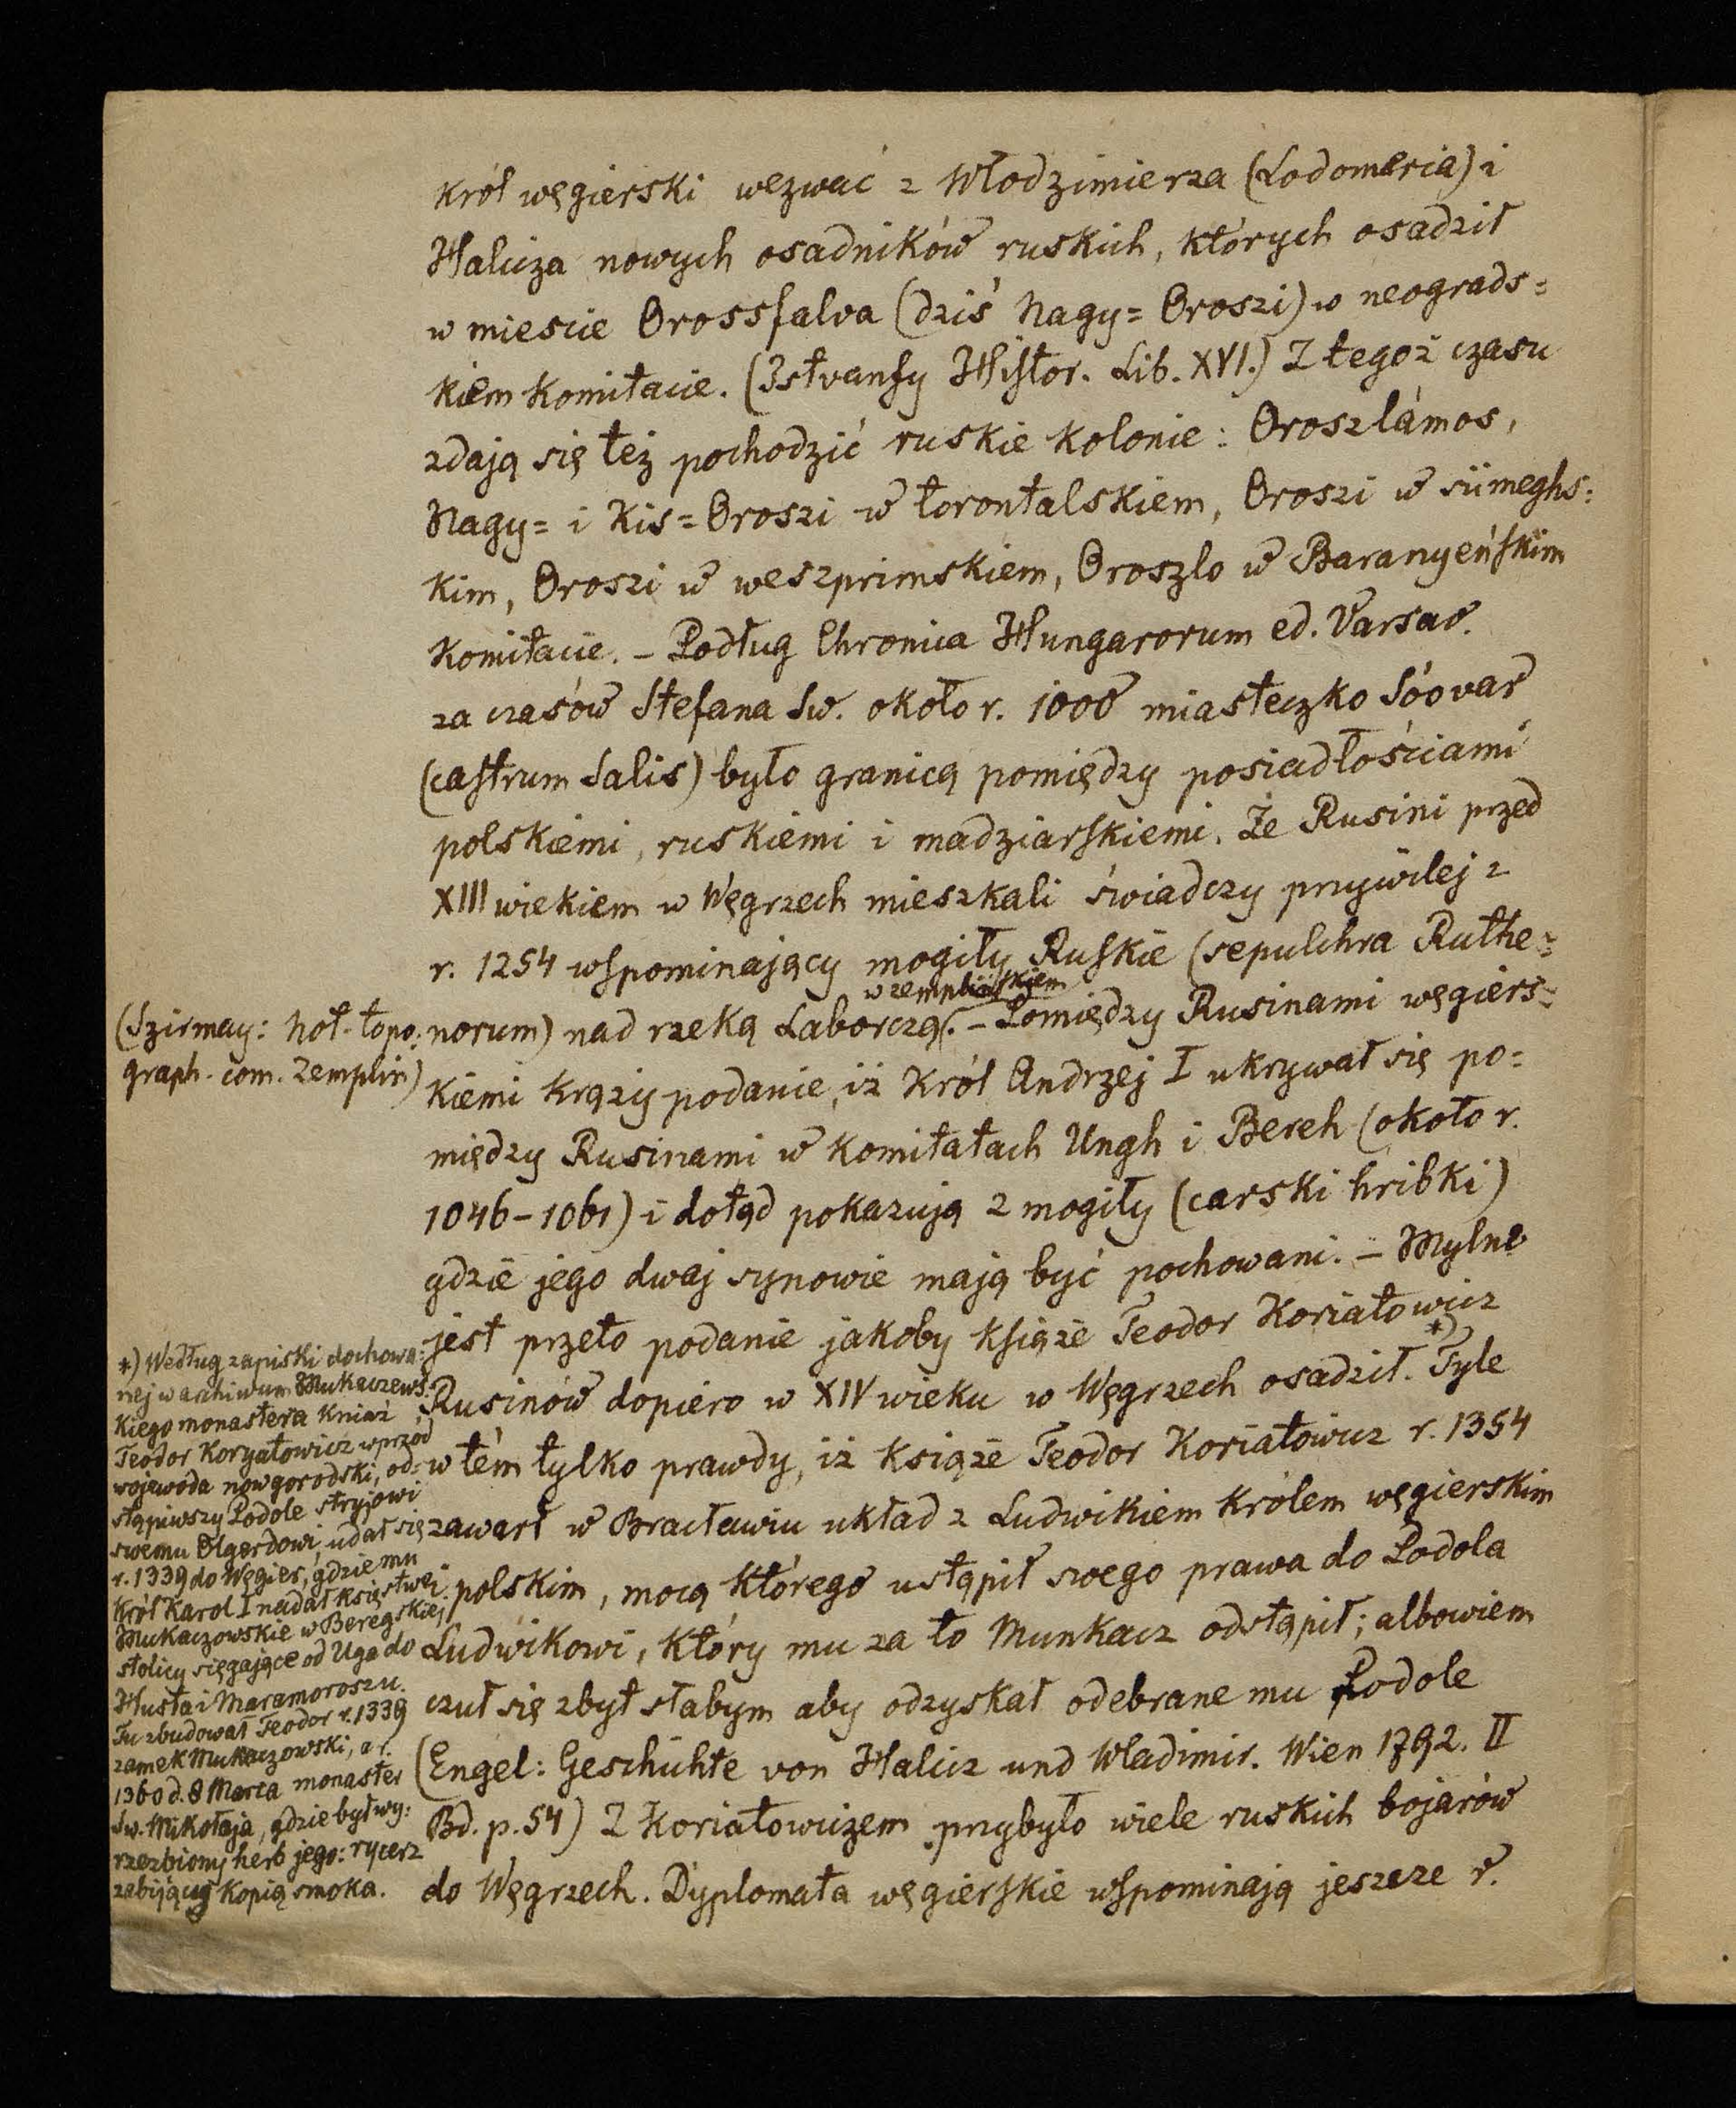 król węgierski wezwać z Włodzimierza (Lodomeria) i
Halicza nowych osadników ruskich, których osadził
w mieście Orossfalva (dziś Nagy=Oroszi) w neograds=
kiem komitacie. (Istvanfy Histor. Lib. XVI.) Z tegoż czasu
zdają się też pochodzić ruskie kolonie: Oroszlámos,
Nagy= i Kis=Oroszi w torontalskiem, Oroszi w sümeghs=
kim, Oroszi w weszprimskiem, Oroszlo w Baranyeńskim
komitacie. – Podług Chronica Hungarorum ed. Varsav.
za czasów Stefana Sw. około r. 1000 miasteczko Sóovar
(castrum Salis) było granicą pomiędzy posiadłościami
polskiemi, ruskiemi i madziarskiemi. Że Rusini przed
XIII wiekiem w Węgrzech mieszkali świadczy przywilej z
r. 1254 wspominający mogiły Ruskie (sepulchra Ruthe=
w zemplińskiem
norum) nad rzeką Laborczą. – Pomiędzy Rusinami węgiers=
kiemi krąży podanie, iż Król Andrzej I ukrywał się po=
między Rusinami w komitatach Ungh i Bereh (około r.
1046–1061) i dotąd pokazują 2 mogiły (carski hribki)
gdzie jego dwaj synowie mają być pochowani. – Mylne
jest przeto podanie jakoby książe Teodor Koriatowicz
Rusinów dopiero w XIV wieku w Węgrzech osadził.*) Tyle
w tém tylko prawdy, iż książe Teodor Koriatowicz r. 1354
zawarł w Bracławiu układ z Ludwikiem Królem węgierskim
i polskim, mocą którego ustąpił swego prawa do Podola
Ludwikowi, który mu za to Munkacz odstąpił; albowiem
czuł się zbyt słabym aby odzyskał odebrane mu Podole
(Engel: Geschichte von Halicz und Wladimir. Wien 1792. II
Bd. p. 54) Z Koriatowiczem przybyło wiele ruskich bojarów
do Węgrzech. Dyplomata węgierskie wspominają jeszcze r.
(Szirmay: not. topo=
graph. com. Zemplin)
*) Według zapiski dochowa=
nej w archiwum Mukaczews=
kiego monastera Kniaź
Teodor Koryatowicz wprzód
wojewoda nowgorodski, od=
stąpiwszy Podole stryjowi
swemu Olgerdowi, udał się
r. 1339 do Węgier, gdzie mu
Król Karol I nadał księstwo
Mukaczowskie w Beregskiej
stolicy sięgające od Uga do
Husta i Maramoroszu.
Tu zbudował Teodor r. 1339
zamek Mukaczowski, a r.
1360 d. 8 Marca monaster
Sw. Mikołaja, gdzie był wy=
rzezbiony herb jego: rycerz
zabijający kopią smoka.